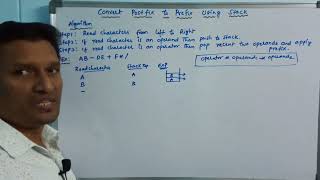 Convert Postfix to Prefix Using Stack
Algorithm
Step1: Read characters from Left to Right
Step2: if read character is an operand then push to stack.
Step3: if read character is an operator then pop recent two operands and apply
prefix.
Ex: AB-DE+F*/
operator operand1 operand2
Read character Stack Op Exp
A A
B B
-